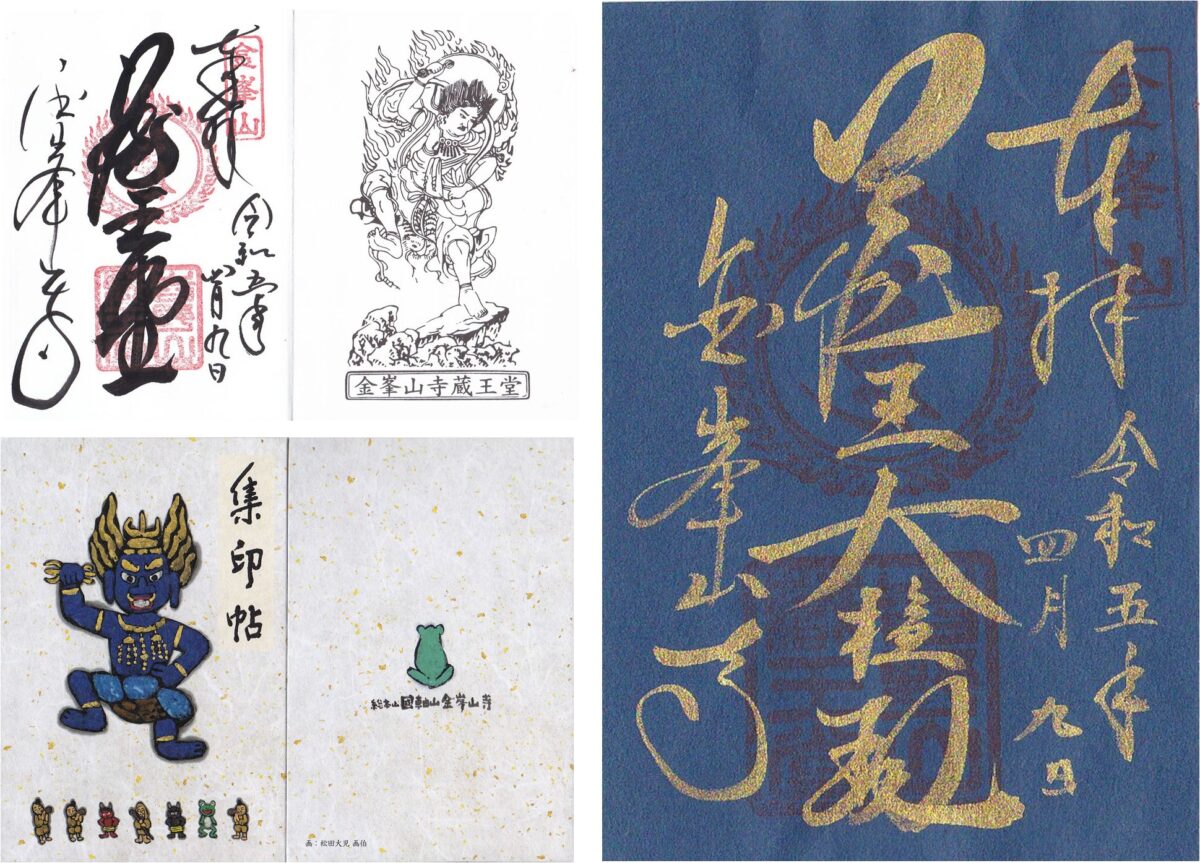 奉拝
金峯山
令和五年
四月九日
蔵王堂
金峯山寺
金峯山寺蔵王堂
集印帖
総本山國軸山金峯山寺
画：松田大児 画伯
奉拝
金峯山
令和五年
四月九日
蔵王大権現
金峯山寺